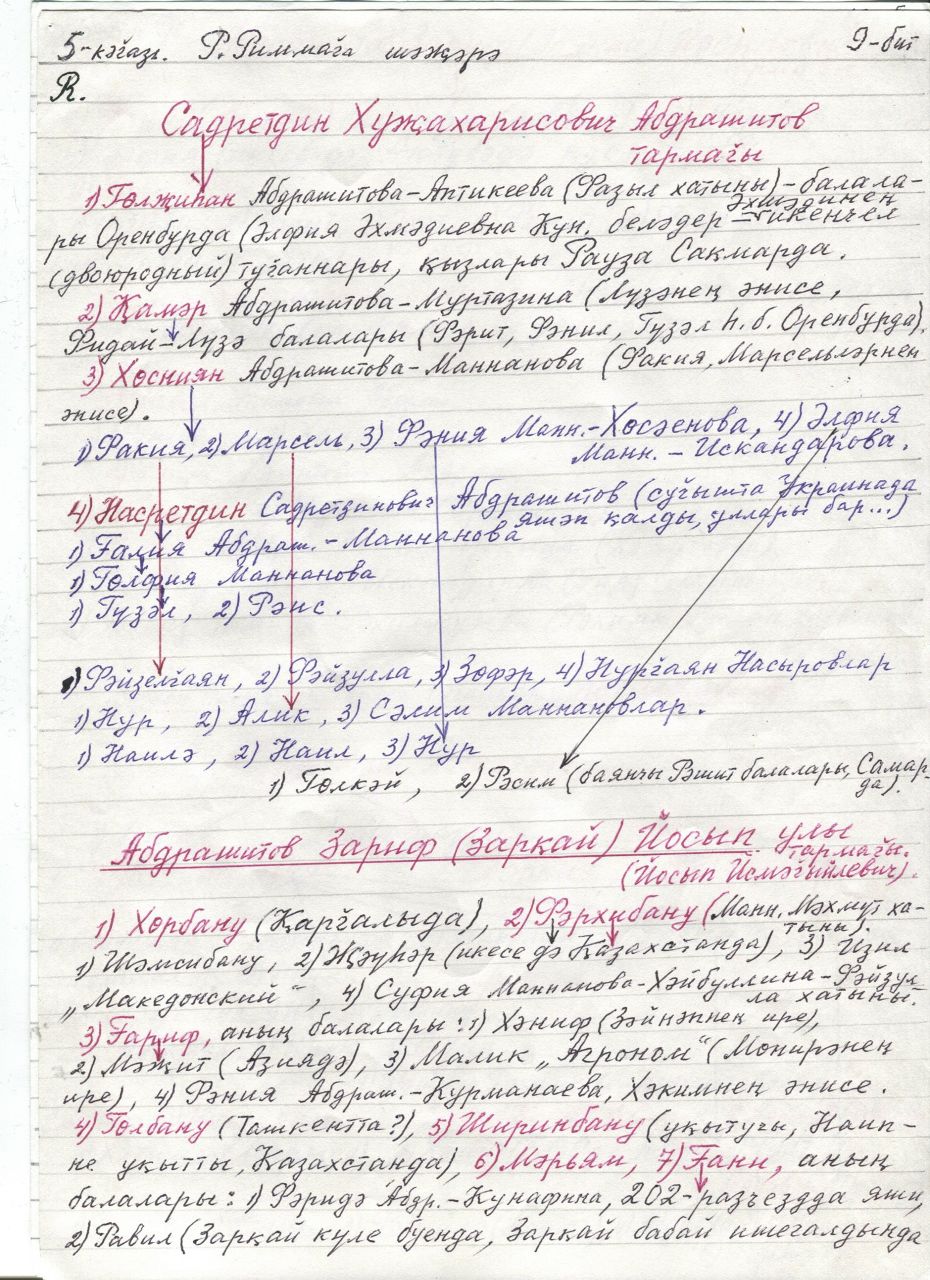 5-кәгазь. Р. Риммаға шәжәрә 9-бит
R.
Садретдин Хужахарисович Абдрашитов
тармағы
1) Гөлҗиһан Абдрашитова-Аптикеева (Фазыл хатыны)-балала-
ры Оренбурда (Әлфия Әхмәдиевна Кун. беләдер - Әхмәдинең икенчел
(двоюродный) туғаннары, қызлары Рауза Сакмарда.
2) Қамәр Абдрашитова-Муртазина (Лүзәнең әнисе,
Фидай-Лүзә балалары (Фәрит, Фәнил, Гүзәл һ.б. Оренбурда).
3) Хөсниян Абдрашитова-Маннанова (Факия, Марсельләрнең
әнисе).
1) Факия, 2) Марсель, 3) Фәния Манн.-Хөсәенова, 4) Әлфия
Манн. - Искандарова.
4) Насретдин Садретдинович Абдрашитов (суғышта Украинада
яшәп қалды, уллары бар...)
1) Ғалия Абдраш.-Маннанова
1) Гөлфия Маннанова
1) Гүзәл, 2) Рәис.
1) Фәйзелғаян, 2) Фәйзулла, 3) Зөфәр, 4) Нурғаян Насыровлар
1) Нур, 2) Алик, 3) Сәлим Маннановлар.
1) Наилә, 2) Наил, 3) Нур
1) Гөлкәй, 2) Рәсим (баянчы Рәшит балалары, Самар-
да).
Абдрашитов Зариф (Зарқай) Йосып улы
тармағы.
(Йосып Йсмәғыйлевич).
1) Хөрбану (Қарғалыда), 2) Фәрхибану (Манн. Мәхмүт ха-
тыны).
1) Шәмсибану, 2) Җәүһәр (икесе дә Қазахстанда), 3) Изил
„Македонский“, 4) Суфия Маннанова-Хәйбуллина-Фәйзул-
ла хатыны.
3) Ғариф, аның балалары: 1) Хәниф (Зәйнәпнең ире),
2) Мәжит (Азиядә), 3) Малик „Агроном“ (Мөнирәнең
ире), 4) Рәния Абдраш.-Курманаева, Хәкимнең әнисе.
4) Гөлбану (Ташкентта?), 5) Ширинбану (уқытучы, Наип-
не уқытты, Қазахстанда), 6) Мәрьям, 7) Ғани, аның
балалары: 1) Фәридә Абдр.-Кунафина, 202-разъездда яши,
2) Равил (Зарқай күле буенда, Зарқай бабай ишегалдында